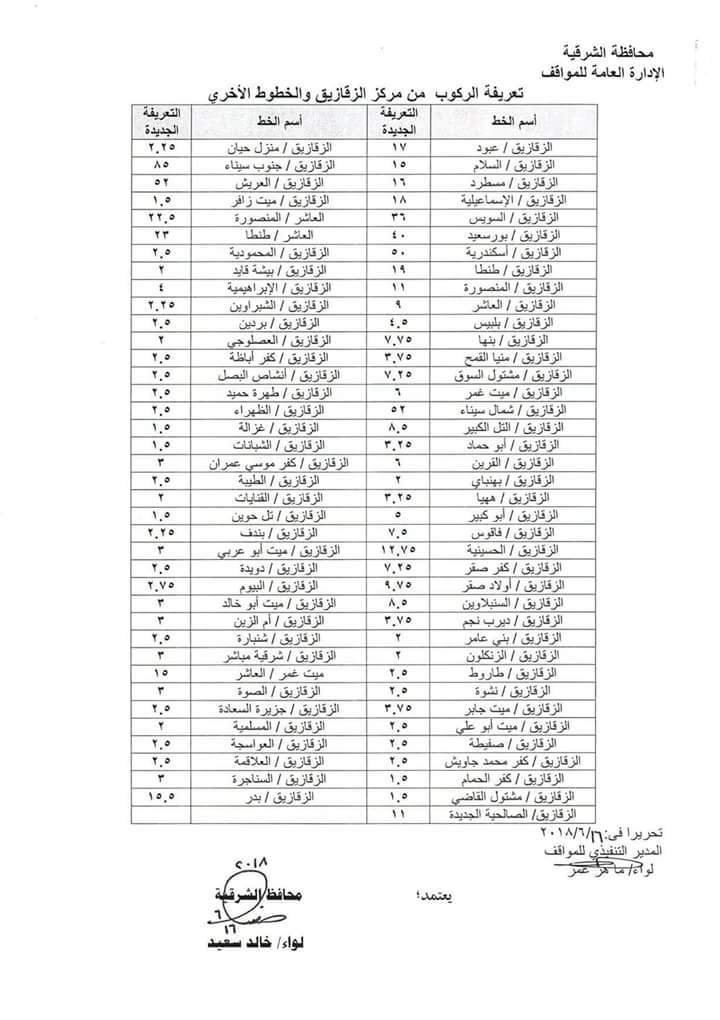 محافظة الشرقية
الإدارة العامة للمواقف
تعريفة الركوب من مركز الزقازيق والخطوط الأخري
أسم الخط التعريفة الجديدة أسم الخط التعريفة الجديدة
الزقازيق / عبود ١٧ الزقازيق / منزل حيان ٢.٢٥
الزقازيق / السلام ١٥ الزقازيق / جنوب سيناء ٨٥
الزقازيق / مسطرد ١٦ الزقازيق / العريش ٥٢
الزقازيق / الإسماعيلية ١٨ الزقازيق / ميت زافر ١.٥
الزقازيق / السويس ٣٦ العاشر / المنصورة ٢٢.٥
الزقازيق / بورسعيد ٤٠ العاشر / طنطا ٢٣
الزقازيق / أسكندرية ٥٠ الزقازيق / المحمودية ٢.٥
الزقازيق / طنطا ١٩ الزقازيق / بيشة قايد ٢
الزقازيق / المنصورة ١١ الزقازيق / الإبراهيمية ٤
الزقازيق / العاشر ٩ الزقازيق / الشبراوين ٢.٢٥
الزقازيق / بلبيس ٤.٥ الزقازيق / بردين ٢.٥
الزقازيق / بنها ٧.٧٥ الزقازيق / العصلوجي ٢
الزقازيق / منيا القمح ٣.٧٥ الزقازيق / كفر أباظة ٢.٥
الزقازيق / مشتول السوق ٧.٢٥ الزقازيق / أنشاص البصل ٢.٥
الزقازيق / ميت غمر ٦ الزقازيق / طهرة حميد ٢.٥
الزقازيق / شمال سيناء ٥٢ الزقازيق / الظهراء ٢.٥
الزقازيق / التل الكبير ٨.٥ الزقازيق / غزالة ١.٥
الزقازيق / أبو حماد ٣.٢٥ الزقازيق / الشبانات ١.٥
الزقازيق / القرين ٦ الزقازيق / كفر موسي عمران ٣
الزقازيق / بهنباي ٢ الزقازيق / الطيبة ٢.٥
الزقازيق / ههيا ٣.٢٥ الزقازيق / القنايات ٢
الزقازيق / أبو كبير ٥ الزقازيق / تل حوين ١.٥
الزقازيق / فاقوس ٧.٥ الزقازيق / بندف ٢.٢٥
الزقازيق / الحسينية ١٢.٧٥ الزقازيق / ميت أبو عربي ٣
الزقازيق / كفر صقر ٧.٢٥ الزقازيق / دويدة ٢.٥
الزقازيق / أولاد صقر ٩.٧٥ الزقازيق / البيوم ٢.٧٥
الزقازيق / السنبلاوين ٨.٥ الزقازيق / ميت أبو خالد ٣
الزقازيق / ديرب نجم ٣.٧٥ الزقازيق / أم الزين ٣
الزقازيق / بني عامر ٢ الزقازيق / شنبارة ٢.٥
الزقازيق / الزنكلون ٢ الزقازيق / شرقية مباشر ٣
الزقازيق / طاروط ٢.٥ ميت غمر / العاشر ١٥
الزقازيق / نشوة ٢.٥ الزقازيق / الصوة ٣
الزقازيق / ميت جابر ٣.٧٥ الزقازيق / جزيرة السعادة ٢.٥
الزقازيق / ميت أبو علي ٢.٥ الزقازيق / المسلمية ٢
الزقازيق / صفيطة ٢.٥ الزقازيق / العواسجة ٢.٥
الزقازيق / كفر محمد جاويش ٢.٥ الزقازيق / العلاقمة ٢.٥
الزقازيق / كفر الحمام ١.٥ الزقازيق / السناجرة ٣
الزقازيق / مشتول القاضي ١.٥ الزقازيق / بدر ١٥.٥
الزقازيق/ الصالحية الجديدة ١١
تحريرا في: ٢٠١٨/٦/١٦
المدير التنفيذي للمواقف
لواء/ ماهر عمر
يعتمد؛
٢٠١٨
محافظ الشرقية
٦
١٦
لواء/ خالد سعيد